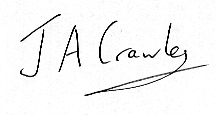 J A Crawley